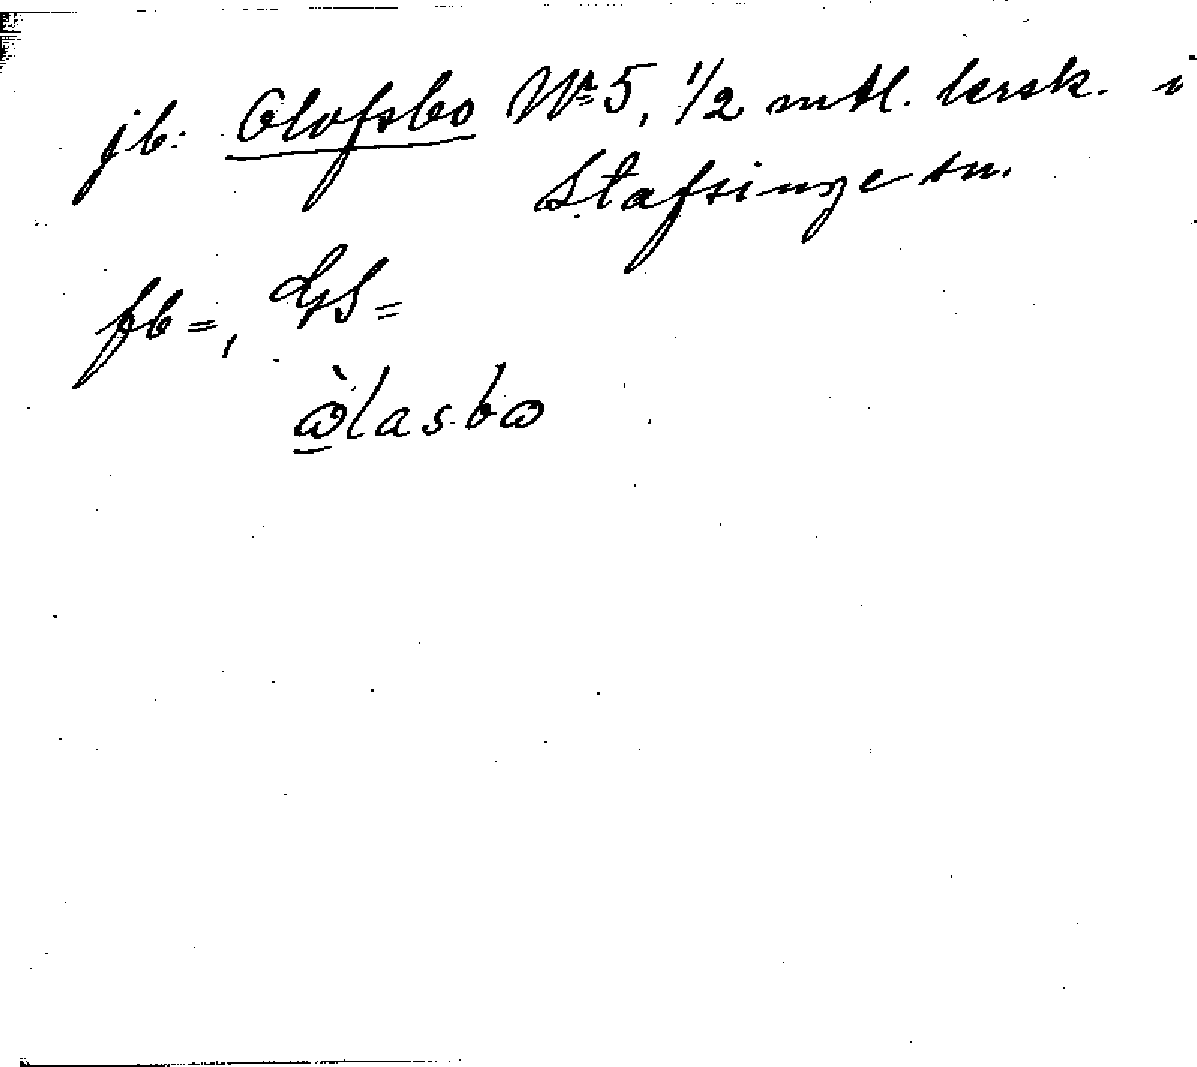 jb: Olofsbo Nº 5, 1/2 mtl. krsk. i
Stafsinge sn.
fb =, GS =
ὼlasbω